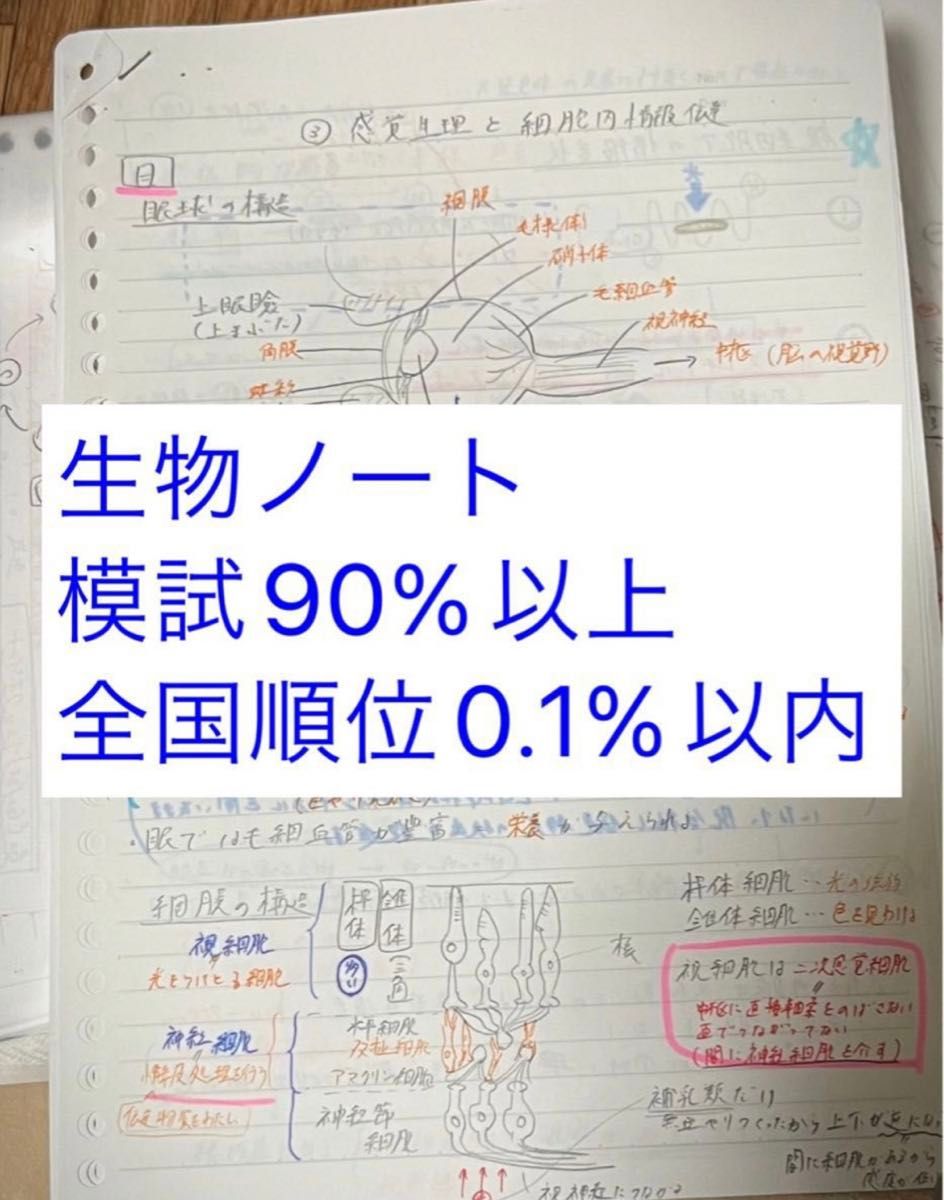 ③ 感覚生理と細胞内情報伝達
目
眼球の構造
網膜
毛様体
硝子体
毛細血管
上眼瞼
(上まぶた)
視神経
角膜
中枢 (脳の視覚野)
虹彩
生物ノート
模試90%以上
全国順位0.1%以内
・眼では毛細血管が豊富
栄養が与えられる
網膜の構造
桿体
錐体
桿体細胞…光の強弱
錐体細胞…色を見わける
視細胞
光をうけとる細胞
多い
核
視細胞は二次感覚細胞
中枢に直接軸索をのばさない
直でつながってない
(間に神経細胞を介す)
神経細胞
情報処理を行う
双極細胞
アマクリン細胞
神経節
細胞
伝達物質をわたし
間に細胞があるから
視神経につながる